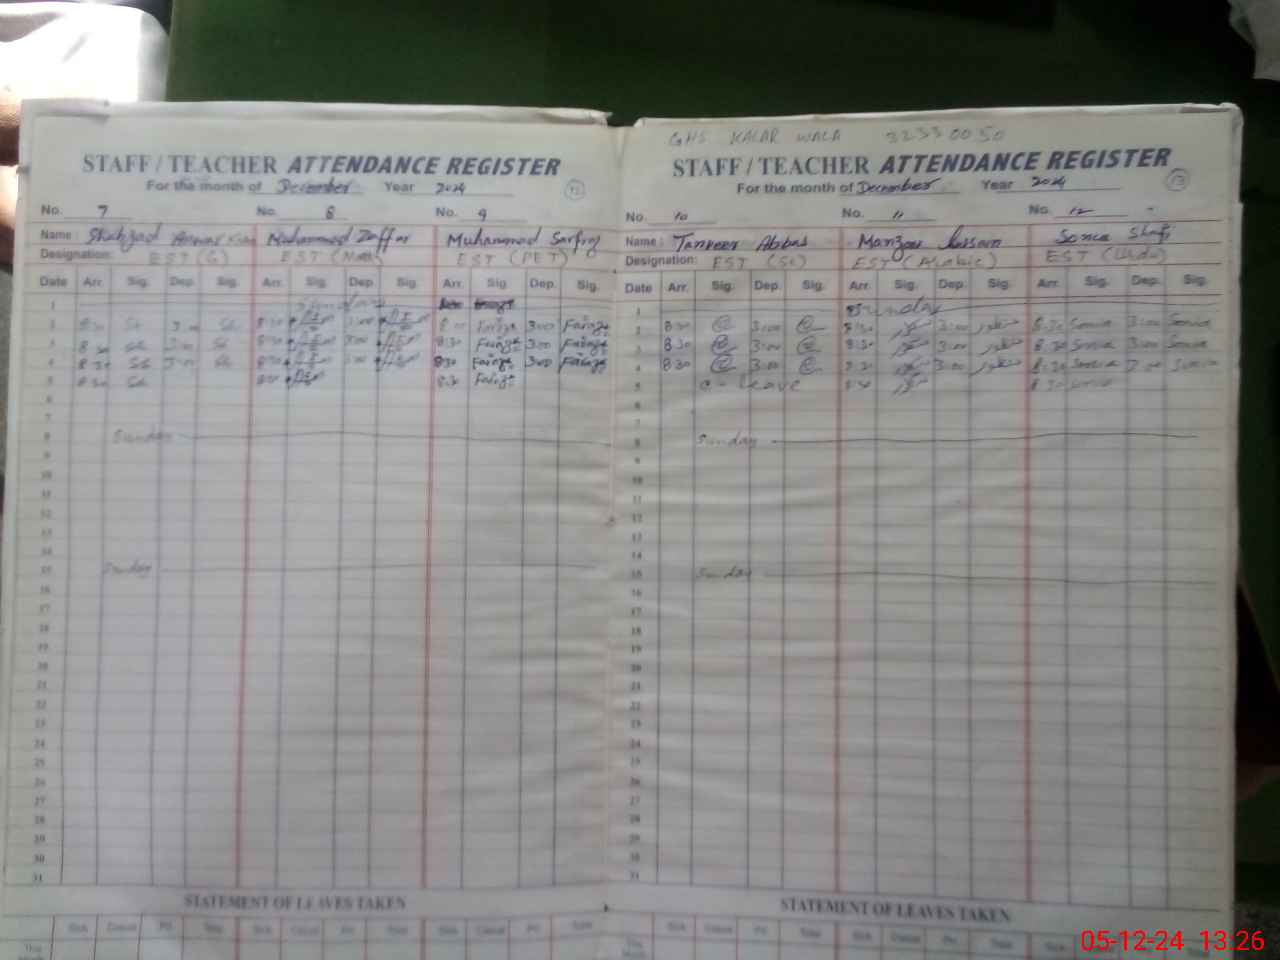 GHS KALAR WALA 32330050
STAFF / TEACHER ATTENDANCE REGISTER
For the month of December Year 2024 12
No. 7 No. 8 No. 9
Name : Shahzad Anwar Muhammad Zaffar Muhammad Sarfraz
Designation: EST (G) EST (Math) EST (PET)
Date Arr. Sig. Dep. Sig. Arr. Sig. Dep. Sig. Arr. Sig. Dep. Sig.
1 Sunday
2 8:30 3:00 8:30 3:00 8:30 3:00
3 8:30 3:00 8:30 3:00 8:30 3:00
4 8:30 3:00 8:30 3:00 8:30 3:00
5 8:30 8:30 8:30
6
7
8 Sunday
9
10
11
12
13
14
15 Sunday
16
17
18
19
20
21
22
23
24
25
26
27
28
29
30
31
STATEMENT OF LEAVES TAKEN
Sick Casual Pri. Total Sick Casual Pri. Total Sick Casual Pri. Total
This Month
STAFF / TEACHER ATTENDANCE REGISTER
For the month of December Year 2024 13
No. 10 No. 11 No. 12
Name : Tanveer Abbas Manzoor Hussain Sonia Shafi
Designation: EST (Sc) EST (Arabic) EST (Urdu)
Date Arr. Sig. Dep. Sig. Arr. Sig. Dep. Sig. Arr. Sig. Dep. Sig.
1 Sunday
2 8:30 3:00 8:30 3:00 منظور 8:30 Sonia 3:00 Sonia
3 8:30 3:00 8:30 3:00 منظور 8:30 Sonia 3:00 Sonia
4 8:30 3:00 8:30 3:00 منظور 8:30 Sonia 3:00 Sonia
5 C - Leave 8:30 8:30 Sonia
6
7
8 Sunday
9
10
11
12
13
14
15 Sunday
16
17
18
19
20
21
22
23
24
25
26
27
28
29
30
31
STATEMENT OF LEAVES TAKEN
Sick Casual Pri. Total Sick Casual Pri. Total Sick
This Month
05-12-24 13.26